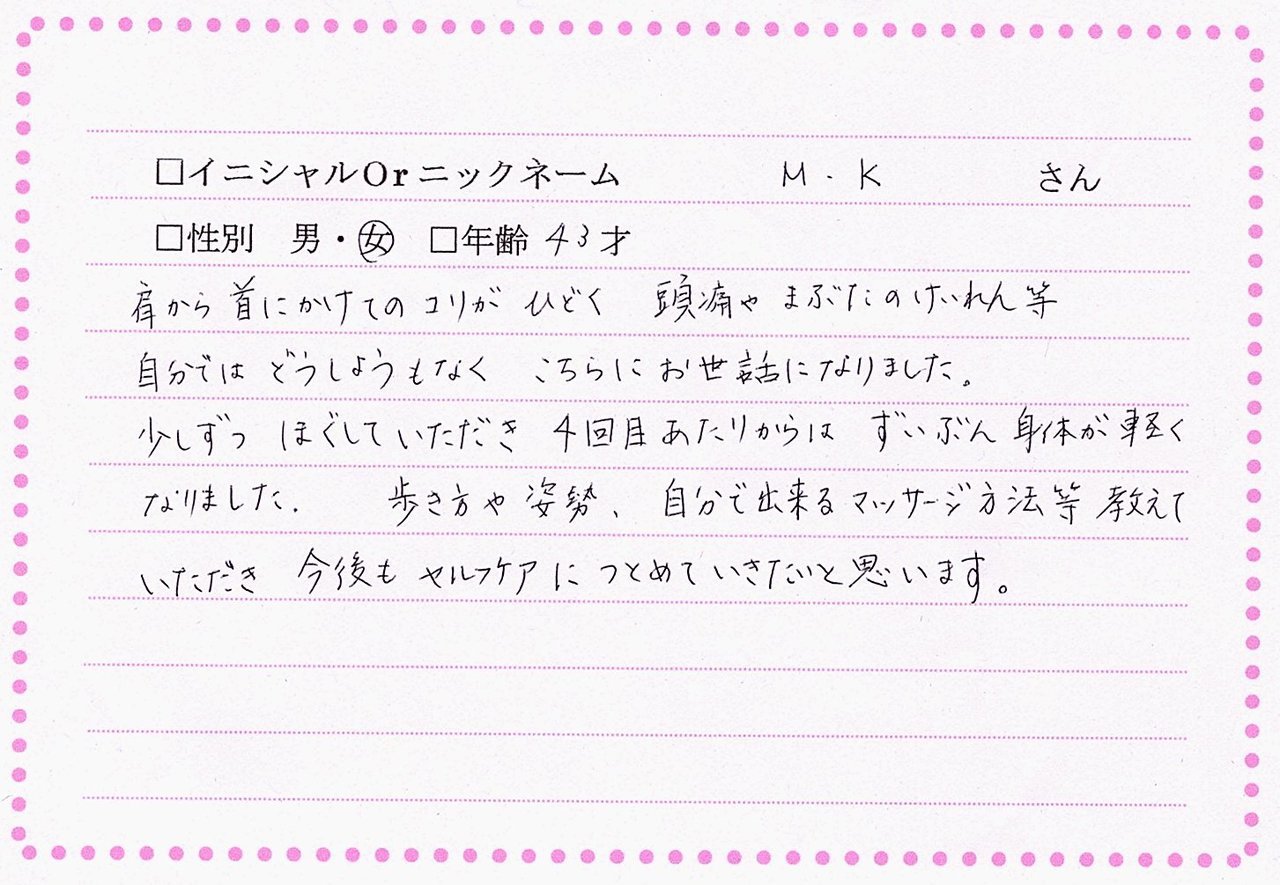 □イニシャルOrニックネーム M・K さん
□性別 男・女 □年齢 43才
肩から首にかけてのコリがひどく 頭痛や まぶたのけいれん等
自分では どうしようもなく こちらにお世話になりました。
少しずつ ほぐしていただき 4回目あたりからは ずいぶん身体が軽く
なりました. 歩き方や姿勢、自分で出来るマッサージ方法等 教えて
いただき 今後も セルフケアにつとめていきたいと思います。